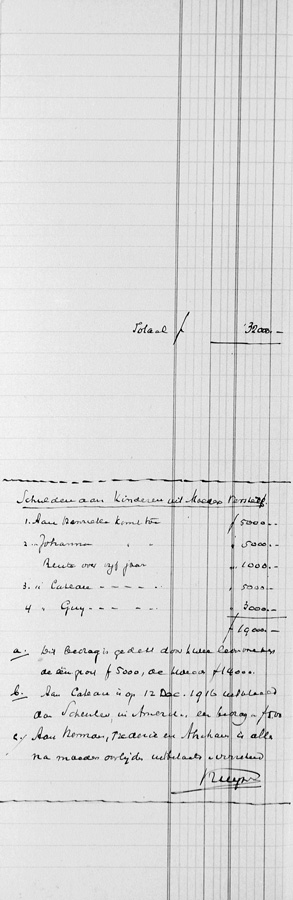 Totaal f 32000.-
Schulden aan Kinderen uit Moeders
1. Aan Henriette komt toe f 5000.-
2. " Johanna " " " 5000.-
Rente over vijf jaar " 1000.-
3. " Cateau - - - - " 5000.-
4 " Guy - - - - " 3000.-
f 19000.-
a. Dit bedrag is gedekt door twee
de één groot f 5000, de tweede f 14000.
b. Aan Cateau is op 12 Dec. 1916 uitbetaald
aan Scheuler, in Amerik. een bedrag f 500
c. Aan Herman, Frederic en Abraham is alles
na moeders overlijden uitbetaald